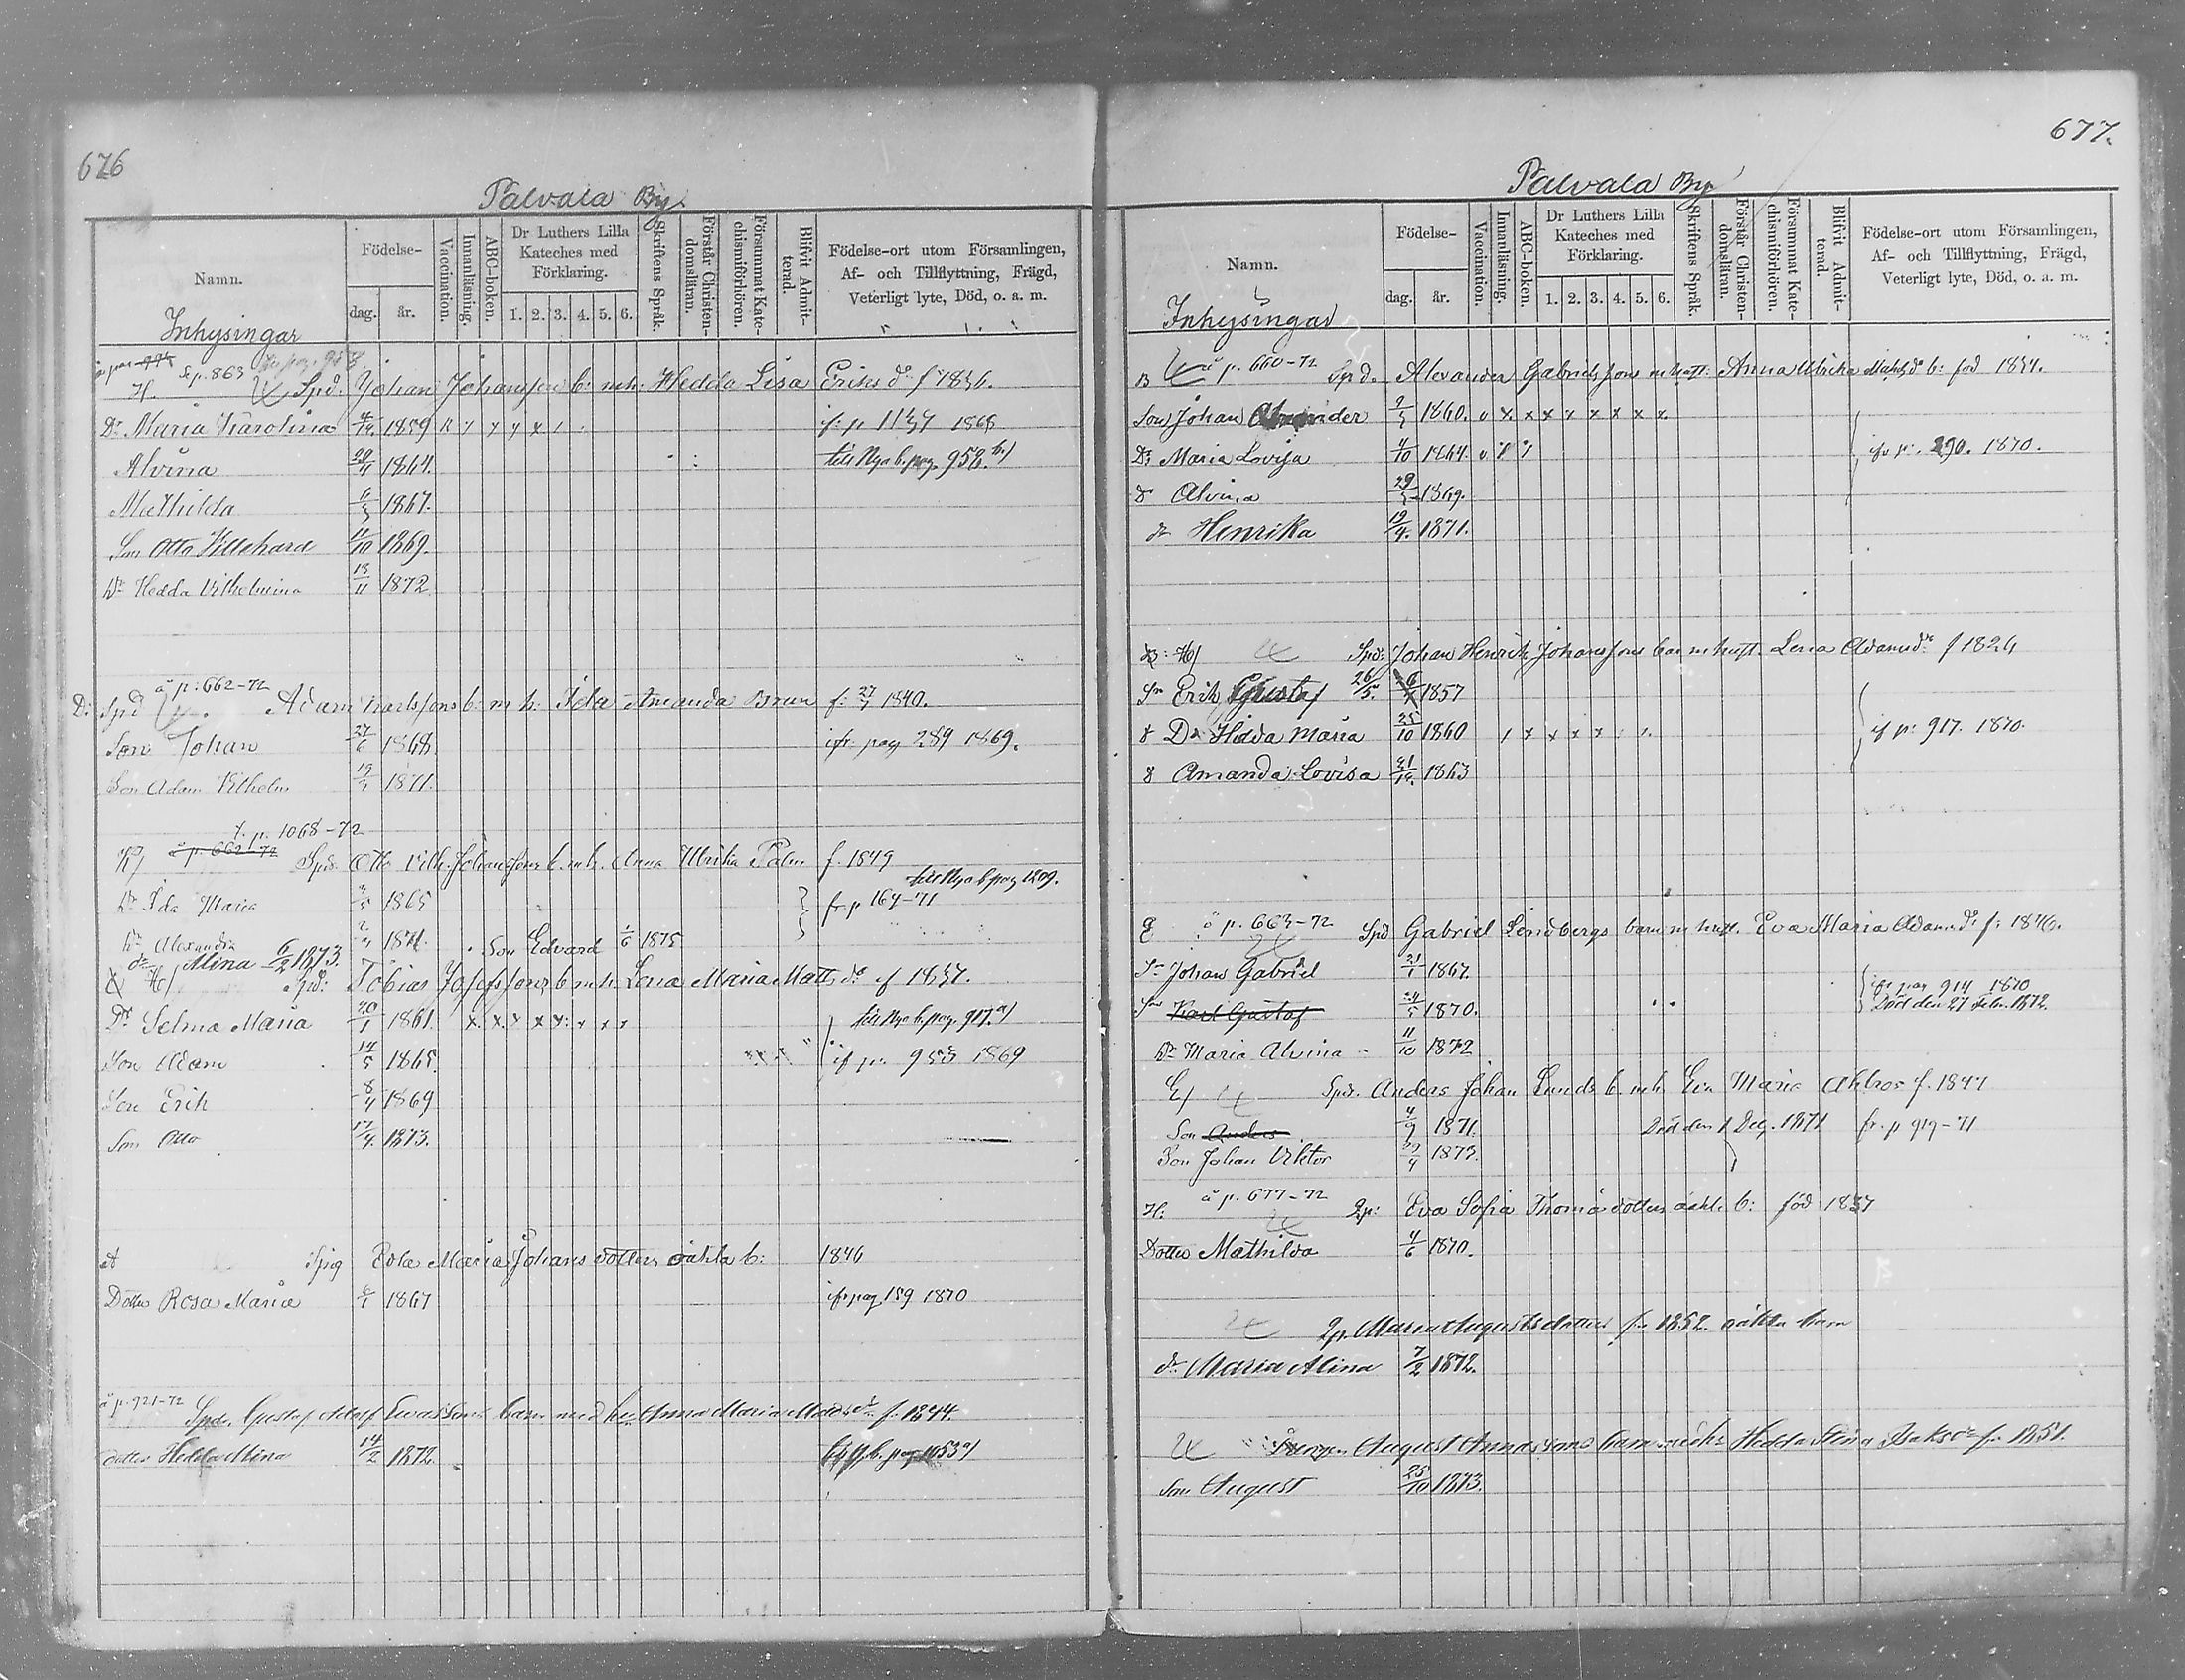 676
Palvala By.
Namn.
Födelse-
dag.
år.
Vaccination.
Innanläsning.
ABC-boken.
Dr Luthers Lilla
Kateches med
Förklaring.
1. 2. 3. 4. 5. 6.
Skriftens Språk.
Förstår Christen-
domsläran.
Försummat Kate-
chismiförhören.
Blifvit Admit-
terad.
Födelse-ort utom Församlingen,
Af- och Tillflyttning, Frägd,
Veterligt lyte, Död, o. a. m.
Inhysingar
& p. 863
H. Spd: Johan Johanssons b: m h: Hedda Lisa Eriks dr f 1836.
Dr Maria Karolina 1859 x x
1868
Alvina 29/11 1864. till Nya b. pag. 952. b)
Mathilda 6/3 1867.
Son Otto Villehard 11/10 1869.
Dr Hedda Vilhelmina 13/11 1872.
å p: 662-72
D: Spd Adam Karlssons b: m h: Ida Amanda Brun f: 27/7 1840.
Son Johan 27/6 1868. ifr. pag 289 1869.
Son Adam Vilhelm 19/3 1871.
t. p. 1068-72
å p. 662-72 Spd. Otto Vilh. Johanssons b. m h. Anna Ulrika Palm f. 1849
till Nya b pag 1209.
Dr Ida Maria 1865 fr p 167-71
Dr Alexandra 1871. Son Edvard 1/6 1875
dr Alina 6/2 1873.
Spd: Tobias Josefssons b m h Lena Maria Matts dr f 1837.
Dr Selma Maria 20/1 1861. x x x x x x x till Nya b. pag. 917. a)
Son Adam 14/5 1865. if p: 953 1869
Son Erik 8/4 1869
Son Otto 17/4 1873.
Spig Eva Maria Johans dotters oäkta b: 1846
Dotter Rosa Maria 6/1 1867 ifr pag 159 1870
å p. 921-72 Spd. Gustaf Adolf Evassons barn med hu Anna Maria Matts dr f. 1844.
dotter Hedda Alina 14/2 1872.
677.
Palvala By
Namn.
Födelse-
dag.
år.
Vaccination.
Innanläsning.
ABC-boken.
Dr Luthers Lilla
Kateches med
Förklaring.
1. 2. 3. 4. 5. 6.
Skriftens Språk.
Förstår Christen-
domsläran.
Försummat Kate-
chismiförhören.
Blifvit Admit-
terad.
Födelse-ort utom Församlingen,
Af- och Tillflyttning, Frägd,
Veterligt lyte, Död, o. a. m.
Inhysingar
B å p. 660-72 Spd. Alexander Gabrielssons m hust: Anna Ulrika Matts dr b: född 1834.
Son Johan 9/3 1860. v x x x x x x x x
Dr Maria Lovisa 4/10 1864. v ifr p: 290. 1870.
dr Alvina 29/3 1869.
dr Henrika 19/4. 1871.
Spd: Johan Henrik Johanssons barn m hust. Lena Adamsdr f 1824
Sn Erik Gustaf 26/5. 1857
Dr Hedda Maria 25/10 1860 x x x x if p: 917. 1870.
Amanda Lovisa 21/12. 1863
å p. 663-72 Spd Gabriel Lindbergs barn m hust. Eva Maria Adamsdr f: 1846.
Sn Johan Gabriel 21/1 1867.
ifr pag 914 1870
Son Karl Gustaf 24/5 1870. Död den 27 Febr. 1872.
Dr Maria Alvina 11/10 1872
Spd. Anders Johan Lunds b. m h. Eva Maria Ahlros f. 1847
Son Anders 4/9 1871. Död den 1 Dec. 1871 fr. p 919-71
Son Johan Viktor 1873.
H: å p. 677-72 Qp: Eva Sofia Thomasdotters oäkt. b: född 1837
Dotter Mathilda 4/6 1870.
Qp. Maria Augustsdotters f: 1852. oäkta barn
dr Maria Alina 7/2 1872.
August Anderssons barn med h: Hedda Stina Isaksdr f. 1851.
Son August 25/10 1873.